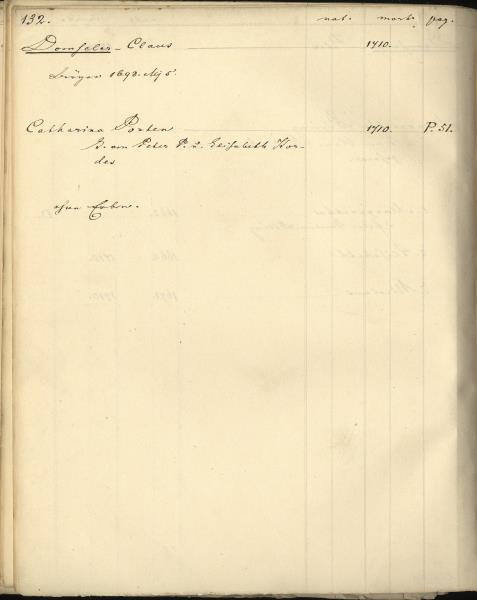 132. nat. mort. pag.
Domfeler - Claus 1710.
Bürger 1692. Maj 5.
Catharina Porten 1710. P. 51.
Peter P. u. Elisabeth Hor-
des
ohne Erben.